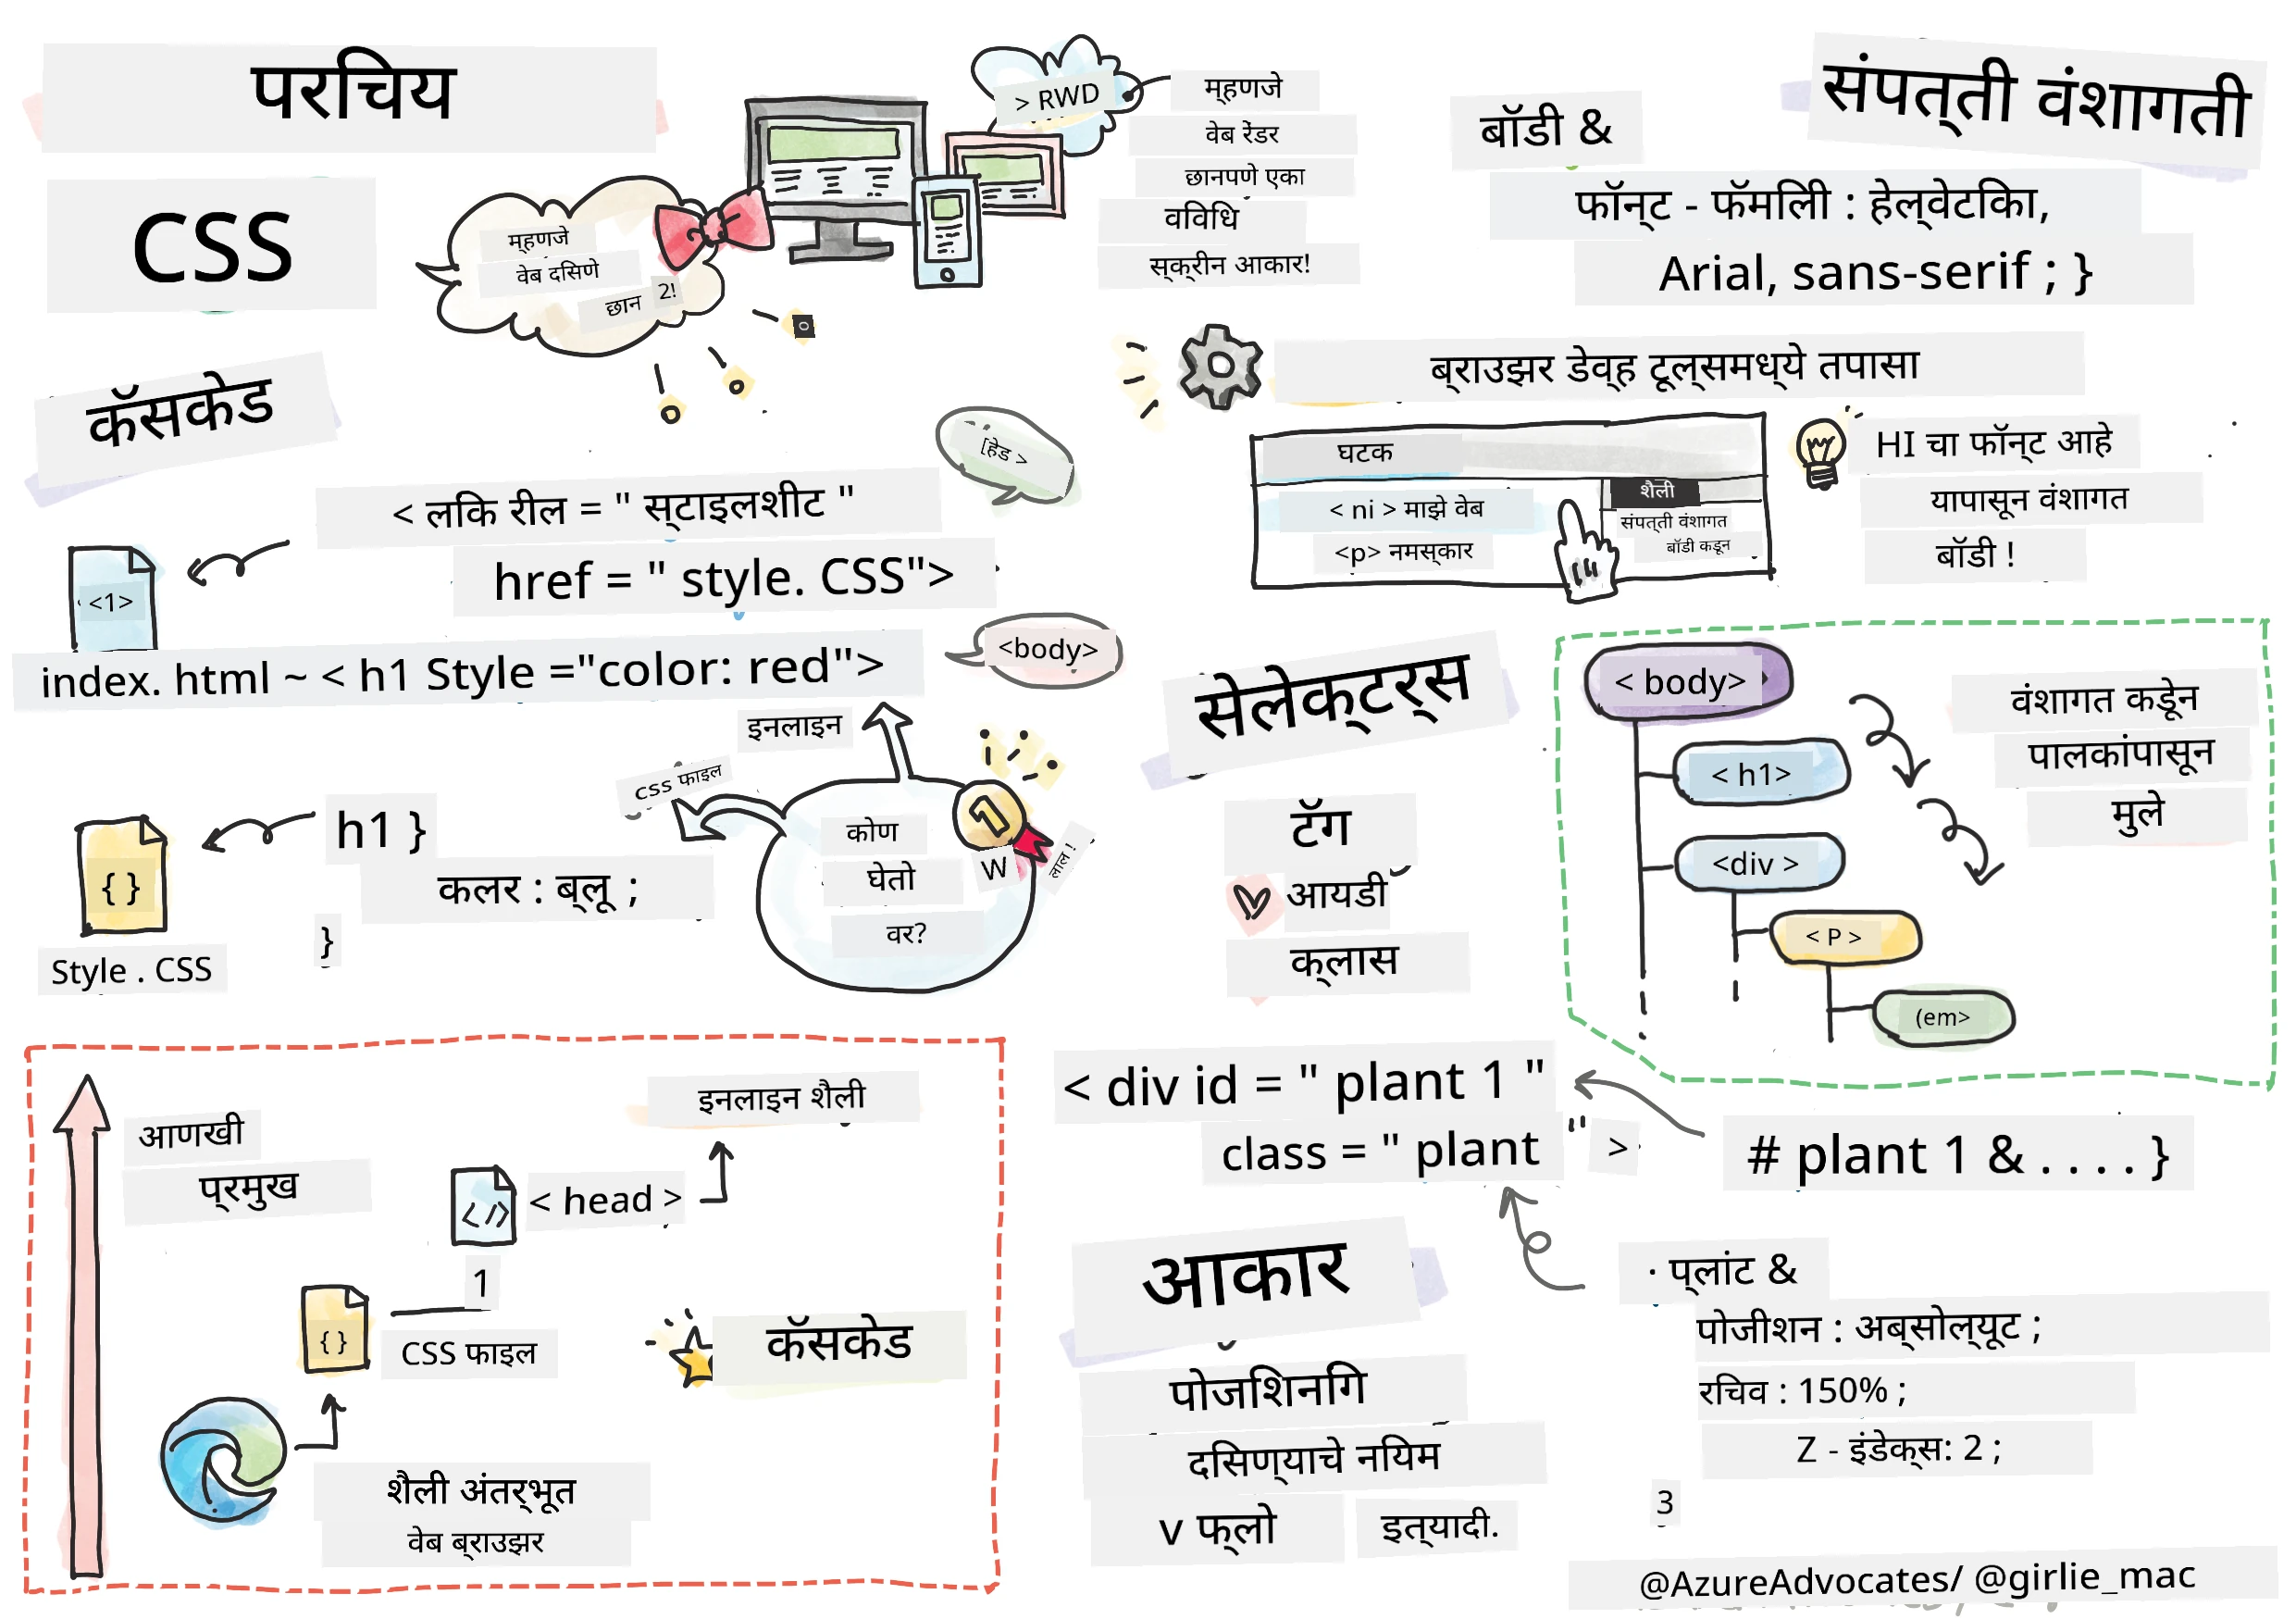 परिचय
CSS
म्हणजे
वेब दिसणे
छान 2!
> RWD
म्हणजे
वेब रेंडर
छानपणे एका
विविध
स्क्रीन आकार!
कॅसकेड
[हेड >
< लिंक रील = " स्टाइलशीट "
href = " style. CSS">
<1>
index. html ~ < h1 Style ="color: red">
<body>
इनलाइन
css फाइल
h1 }
कलर : ब्लू ;
}
{ }
Style . CSS
कोण
घेतो
वर?
1
W
लाल !
आणखी
प्रमुख
इनलाइन शैली
</>
< head >
1
{ }
CSS फाइल
कॅसकेड
शैली अंतर्भूत
वेब ब्राउझर
संपत्ती वंशागती
बॉडी &
फॉन्ट - फॅमिली : हेल्वेटिका,
Arial, sans-serif ; }
ब्राउझर डेव्ह टूल्समध्ये तपासा
घटक
< ni > माझे वेब
<p> नमस्कार
शैली
संपत्ती वंशागत
बॉडी कडून
HI चा फॉन्ट आहे
यापासून वंशागत
बॉडी !
सेलेक्टर्स
टॅग
आयडी
क्लास
< body>
< h1>
<div >
< P >
(em>
वंशागत कडून
पालकांपासून
मुले
< div id = " plant 1 "
class = " plant " >
# plant 1 & . . . . }
आकार
पोजिशनिंग
दिसण्याचे नियम
v फ्लो इत्यादी.
· प्लांट &
पोजीशन : अब्सोल्यूट ;
रचिव : 150% ;
Z - इंडेक्स: 2 ;
3
@AzureAdvocates/ @girlie_mac